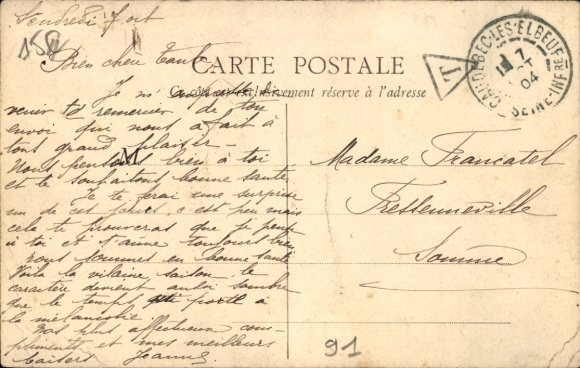 Vendredi 7 oct
15R
Bien chère Tante
CARTE POSTALE
Ce côté est exclusivement réservé à l'adresse
CAUDEBEC-LES-ELBEUF
7
04
SEINE-INFRE
T
Je m'empresse de
venir te remercier de ton
envoi qui nous a fait à
tous grand plaisir
Nous pensons bien à toi
et te souhaitons bonne santé
M
Je te ferai une surprise
un de ces jours, c'est peu mais
cela te prouvera que je pense
à toi et t'aime toujours bien
nous sommes en bonne santé
Voilà la vilaine saison, le
caractère devient aussi sombre
que le temps porte à
la mélancolie.
Nos plus affectueux com-
pliments et mes meilleurs
baisers Jeanne
Madame Francatel
Fressenneville
Somme
91